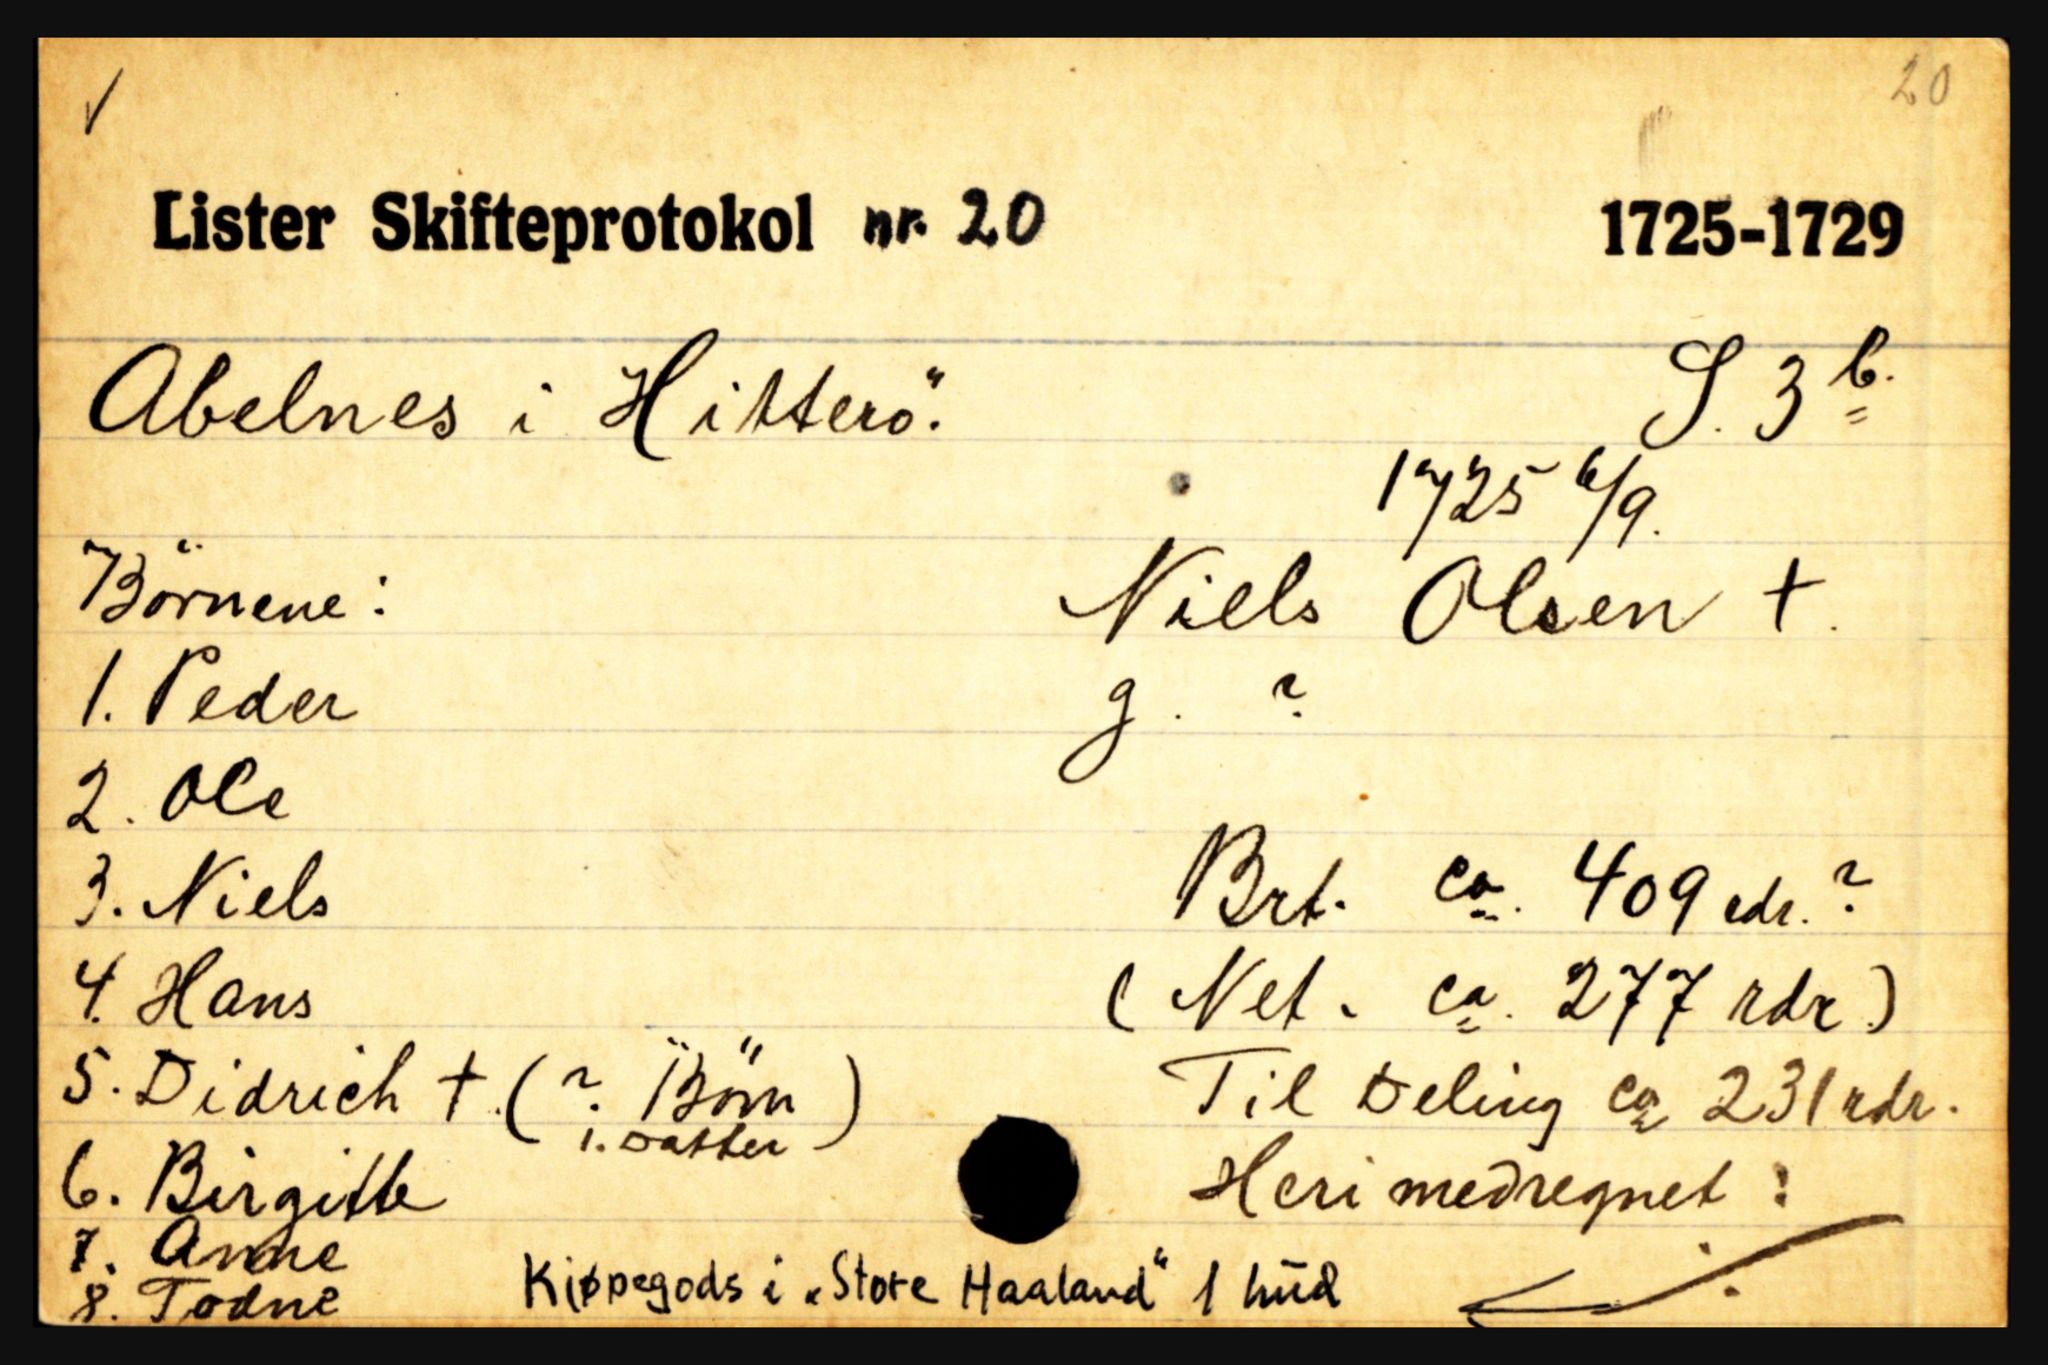 20
Lister Skifteprotokol nr. 20 1725-1729
Abelnes i Hitterö. S. 3 b.
1725 6/9.
Börnene: Niels Olsen †.
1. Peder g. ?
2. Ole
3. Niels Brt. ca. 409 rdr. ?
4. Hans (Net. ca. 277 rdr.)
5. Didrich †. (?. Börn Til Deling ca 231 rdr.
1. Datter)
6. Birgitte Heri medregnet :
7. Anne
8. Todne Kjøpegods i „Store Haaland" 1 hud